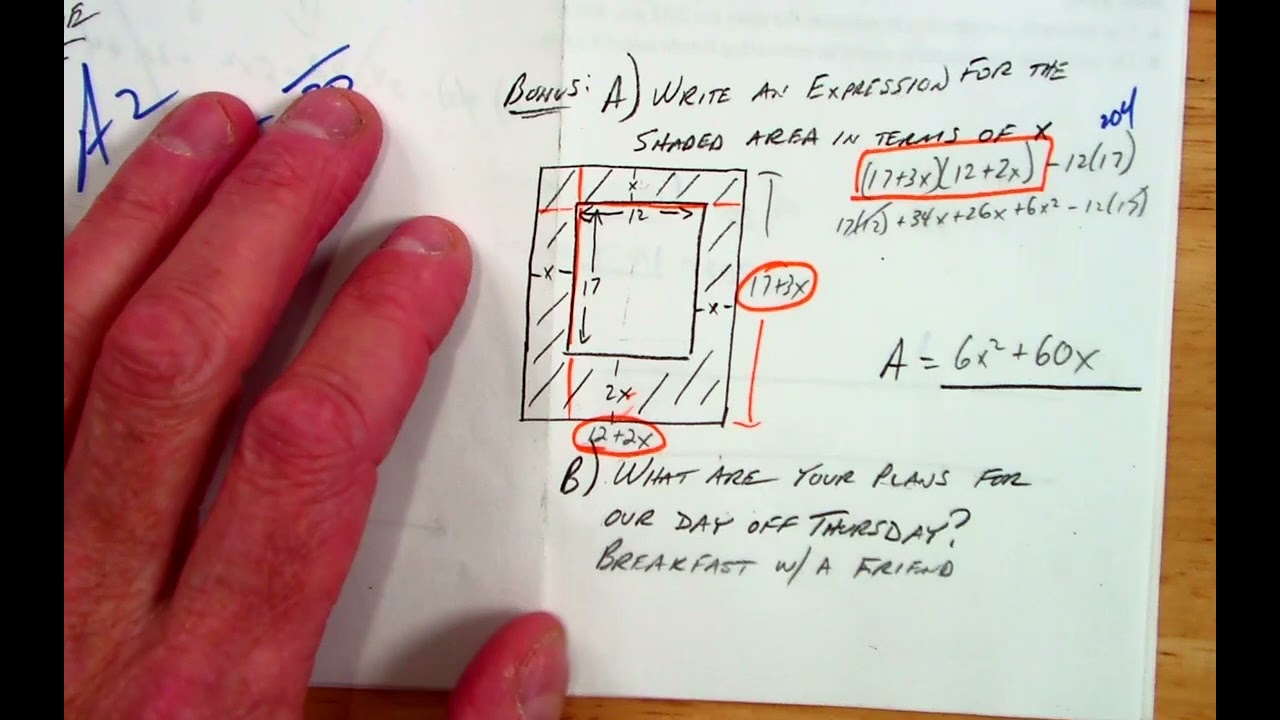 A2
BONUS: A) WRITE AN EXPRESSION FOR THE
SHADED AREA IN TERMS OF X
204
(17+3x)(12+2x) - 12(17)
17(12) + 34x + 26x + 6x² - 12(17)
x
12
x
17
x
17+3x
2x
12+2x
A = 6x² + 60x
B) WHAT ARE YOUR PLANS FOR
OUR DAY OFF THURSDAY?
BREAKFAST W/ A FRIEND